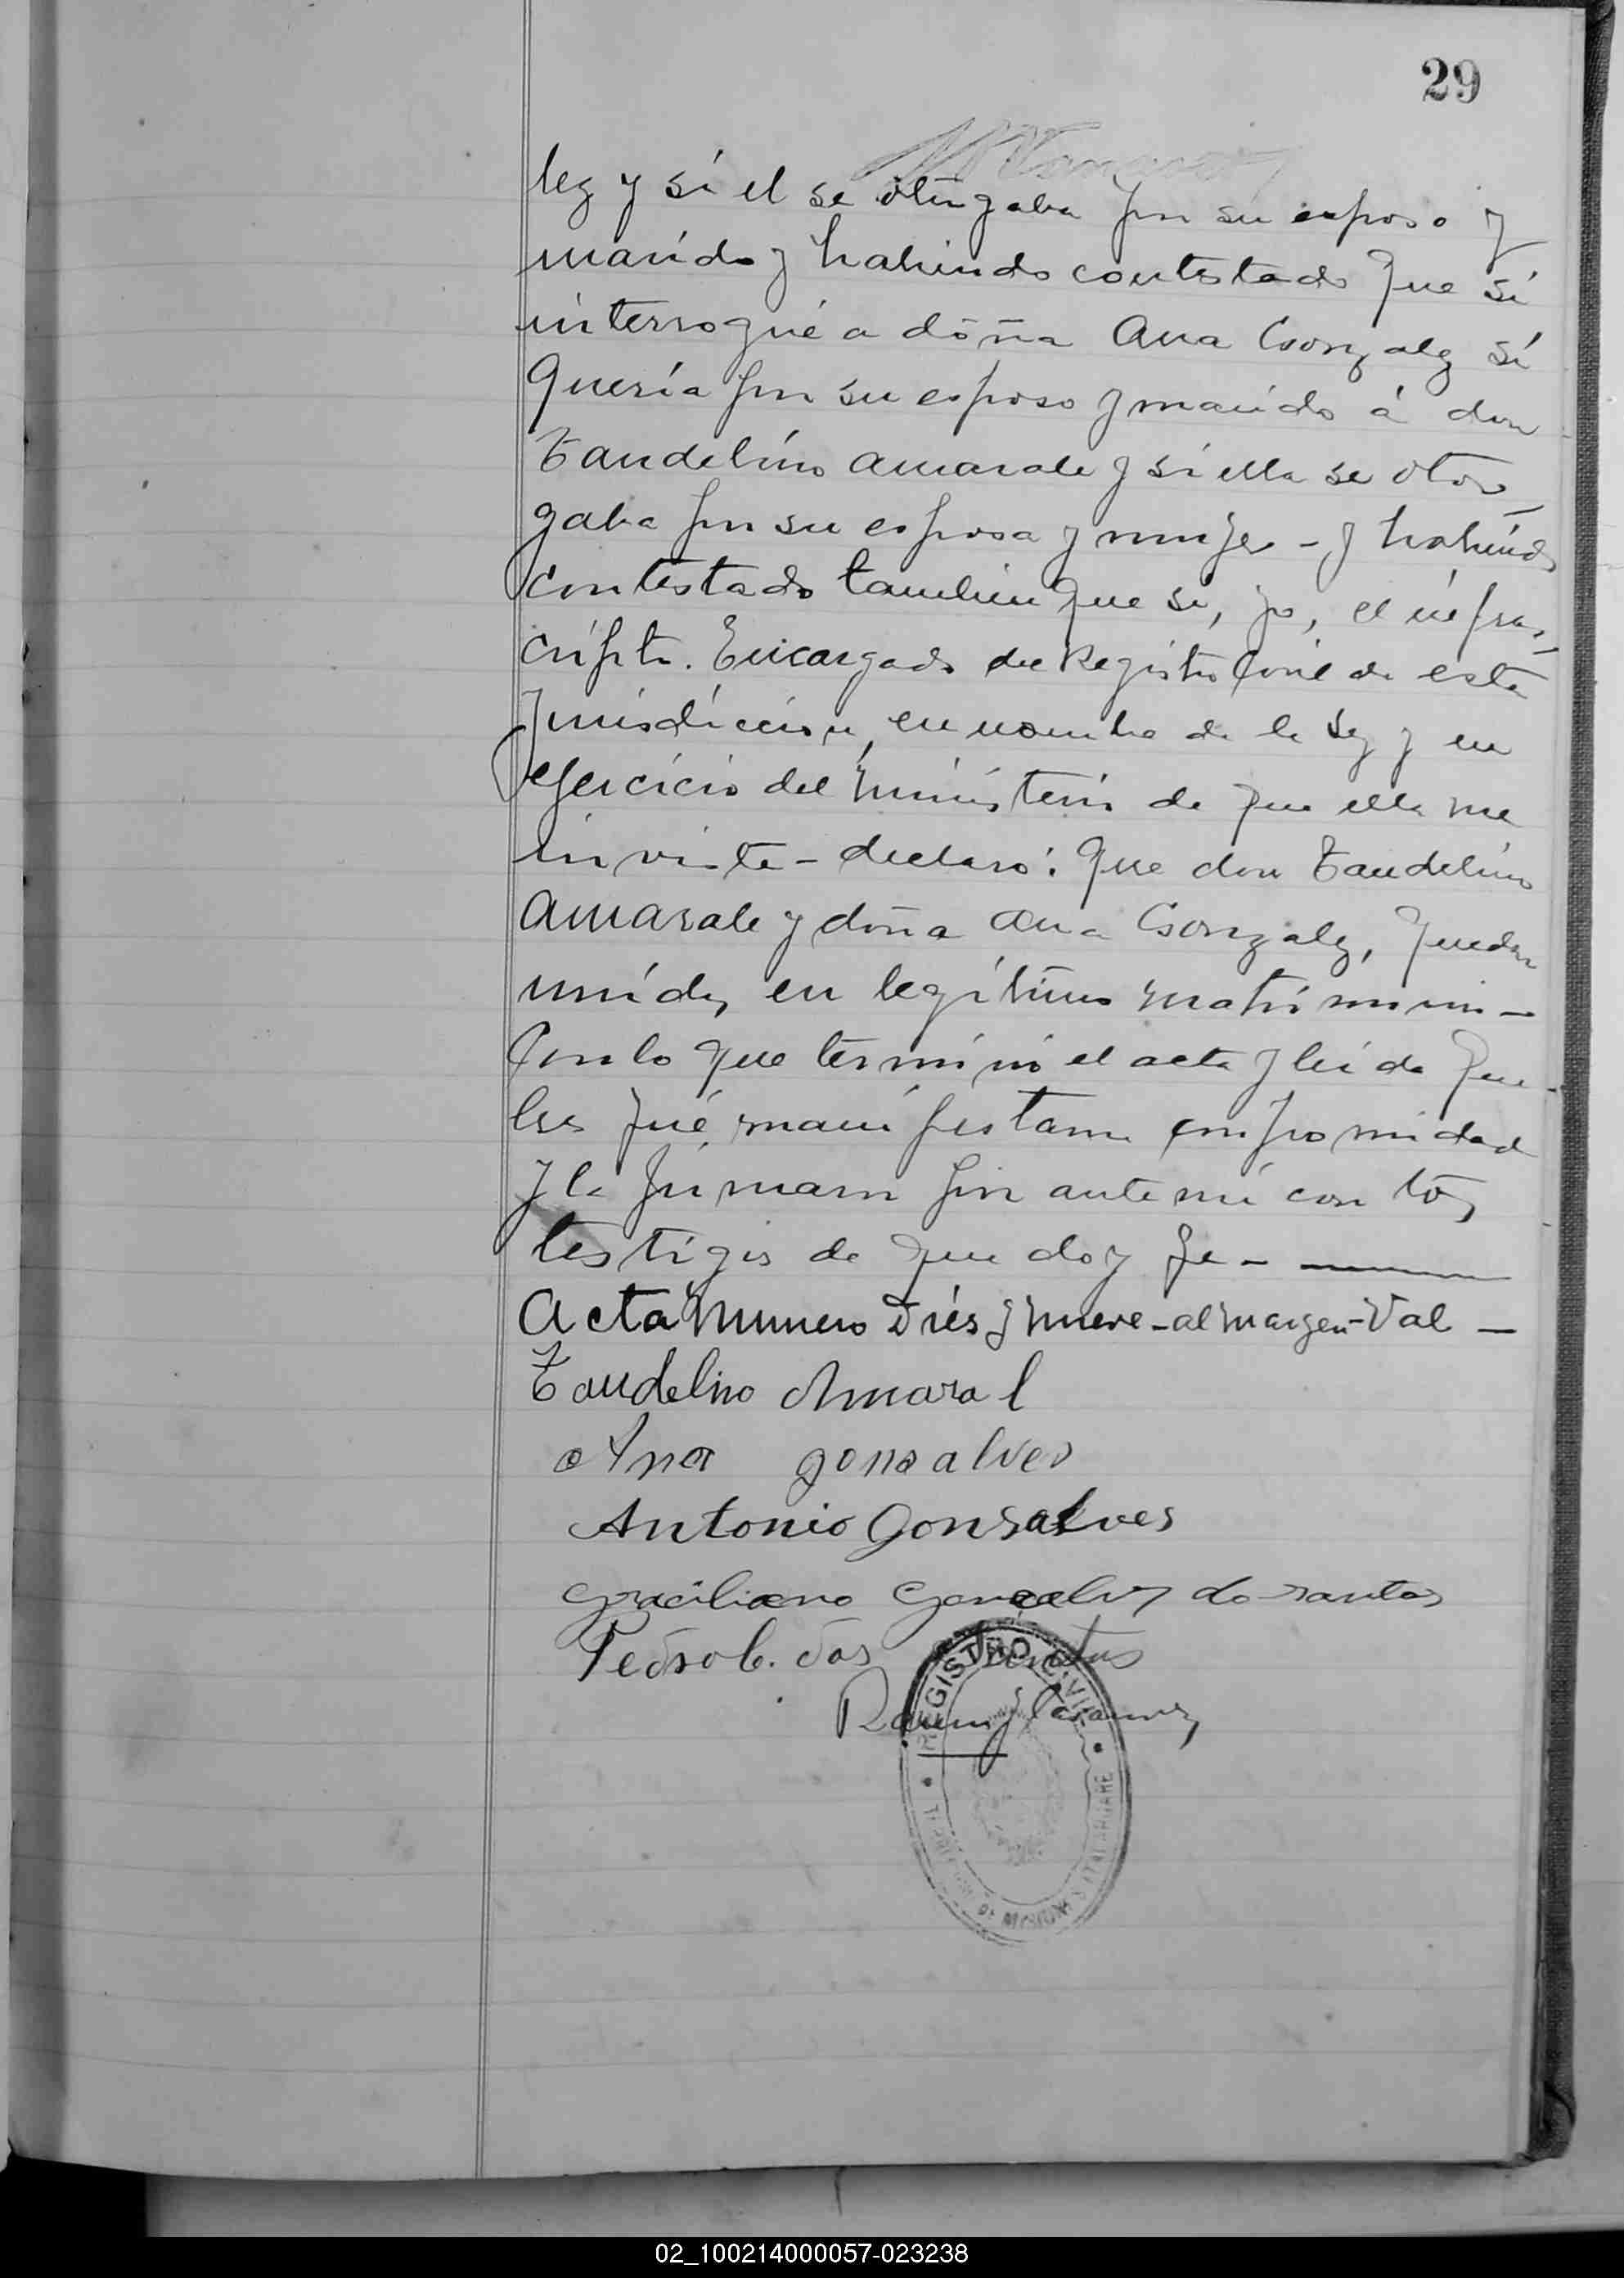 29
lez y si el se otorgaba por su esposo y
marido y habiendo contestado que si
interrogué a doña Ana Gonzalez si
quería por su esposo y marido á don
Tandelino Amarale y si ella se otor
gaba por su esposa y mujer - y habiendo
contestado tambien que si, yo, el infras,
cripto. Encargado del Registro Civil de esta
Jurisdiccion, en nombre de la Ley y en
ejercicio del ministerio de que ella me
inviste - declaró: que don Tandelino
Amarale y doña Ana Gonzalez, quedan
unidos en legítimo matrimonio -
Con lo que terminó el acta y leida que
les fué, manifestaron conformidad
y la firmaron por ante mí con los
testigos de que doy fe -
Acta Numero Diés y nueve - al margen - Val -
Tandelino Amaral
Ana gonsalves
Antonio Gonsalves
Graciliano Gonçalves do santos
Pedro C. dos Santos
REGISTRO CIVIL
TERRITORIO DE MISIONES ITACARUARE
02_100214000057-023238